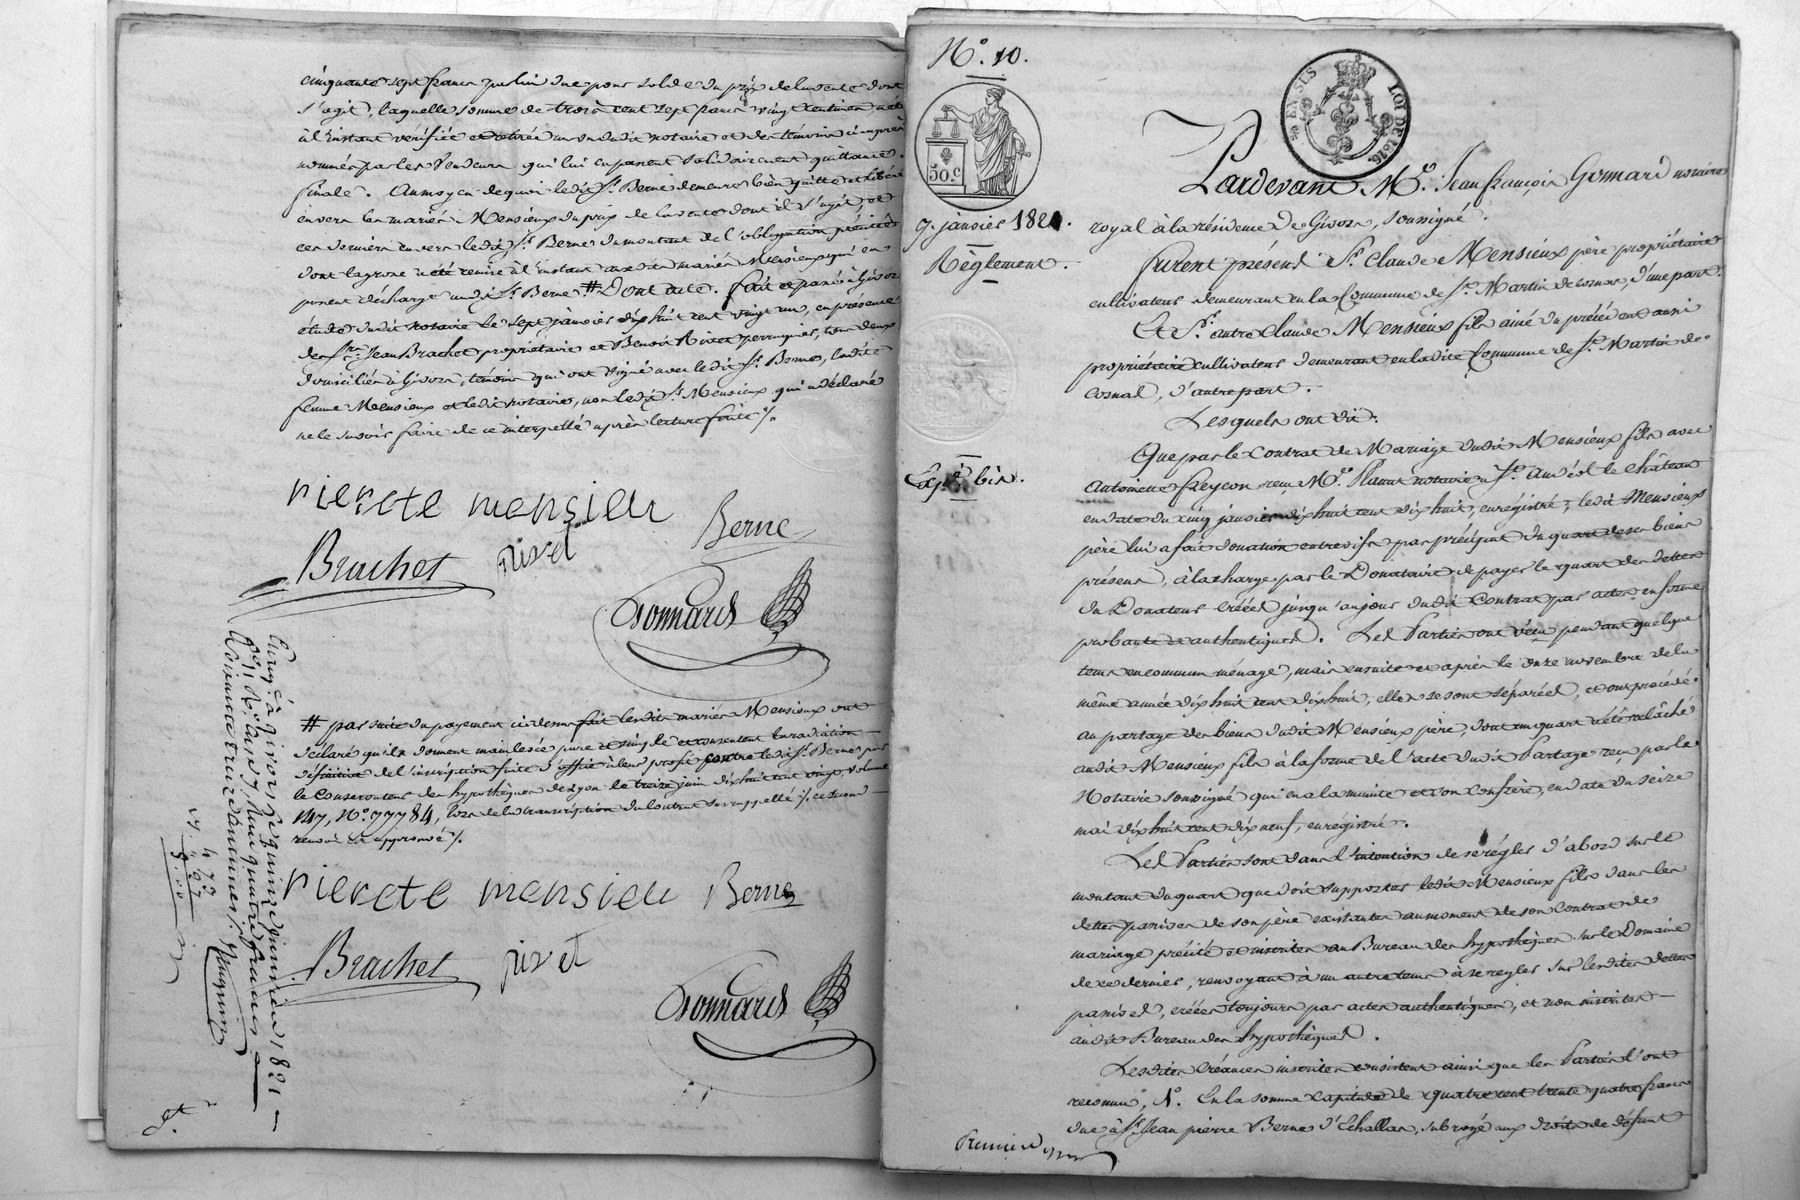 cinquante sept francs par lui due pour solde du prix de la vente dont
s'agit, laquelle somme de trois cent sept francs vingt centimes a été
à l'instant vérifiée et retirée au vu dudit notaire et des témoins ci après
nommés par les vendeurs qui lui en passent solidairement quittance
finale. Au moyen de quoi ledit Sr. Berne demeure bien quitte et libéré
envers les mariés Mensieux du prix de la vente dont il s'agit, et
ces derniers envers ledit Sr. Berne du montant de l'obligation précitée
dont la grosse a été remise à l'instant auxdits mariés Mensieux qui en
passent décharge audit Sr. Berne # Dont acte. fait et passé à Givors
étude dudit notaire le sept janvier dix huit cent vingt un, en présence
de Srs. Jean Brachet propriétaire et Benoit Rivet perruquier, tous deux
domiciliés à Givors, témoins qui ont signé avec ledit Sr. Berne, ladite
femme Mensieux et ledit notaire, non ledit Sr. Mensieux qui a déclaré
ne le savoir faire de ce interpellé après lecture faite ./.
Pierete mensieu
Berne
Brachet
rivet
Gonnard
# par suite du payement ci dessus fait lesdits mariés Mensieux ont
déclaré qu'ils donnent mainlevée pure et simple et consentent la radiation
définitive de l'inscription faite d'office à leur profit contre ledit Sr. Berne par
le Conservateur des hypothèques de Lyon le treize juin dix huit cent vingt, volume
147, No. 77784, lors de la transcription du contrat sus rappellé ./. ce second
renvoi est approuvé ./.
Pierete mensieu
Berne
Brachet
rivet
Gonnard
Enreg. à Givors le quinze janvier 1821
quatre francs
No. 10.
50.c
30 EN SUS
LOI DE 1816.
7. janvier 1821.
Règlement.
Exp. bis.
Pardevant Me. Jean françois Gonnard notaire
royal à la résidence de Givors, soussigné.
Furent présens Sr. Claude Mensieux père propriétaire
cultivateur demeurant en la Commune de St. Martin de cornas, d'une part
Et Sr. autre Claude Mensieux fils ainé du précédent aussi
propriétaire cultivateur demeurant en ladite Commune de St. Martin de
Cornas, d'autre part.
Lesquels ont dit:
Que par le Contrat de Mariage dudit Mensieux fils avec
Antoinette Freycon reçu Me. Planat notaire à St. Andéol le château
en date du cinq janvier dix huit cent dix huit, enrégistré, ledit Mensieux
père lui a fait donation entrevifs par préciput du quart de ses biens
présens, à la charge par le Donataire de payer le quart des dettes
du Donateur créées jusqu'au jour dudit Contrat par actes en forme
probante et authentiques. Les Parties ont vécu pendant quelque
tems en commun ménage, mais ensuite et après le onze novembre de la
même année dix huit cent dix huit, elles se sont séparées, et ont procédé
au partage des biens dudit Mensieux père, dont un quart a été relâché
audit Mensieux fils à la forme de l'acte dudit Partage reçu par le
Notaire soussigné qui en a la minute et son confrère, en date du seize
mai dix huit cent dix neuf, enregistré.
Les Parties sont dans l'intention de se régler d'abord sur le
montant du quart que doit supporter ledit Mensieux fils dans les
dettes passives de son père existantes au moment de son Contrat de
mariage précité et inscrites au Bureau des hypothèques sur le Domaine
de ce dernier, renvoyant à un autre tems à se régler sur lesdites dettes
passives, créées toujours par actes authentiques, et non inscrites
audit Bureau des hypothèques.
Lesdites Créances inscrites consistent ainsi que les Parties l'ont
reconnu, 1o. En la somme Capitale de quatre cent trente quatre francs
due à Sr. Jean pierre Berne d'Echallas, subrogé aux droits de défunt